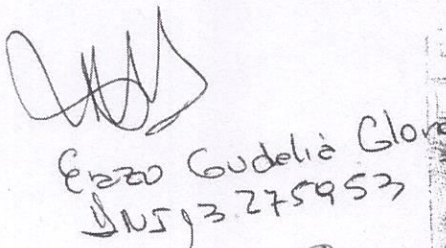 Erazo Gudelia Glori
DNI 93.275953